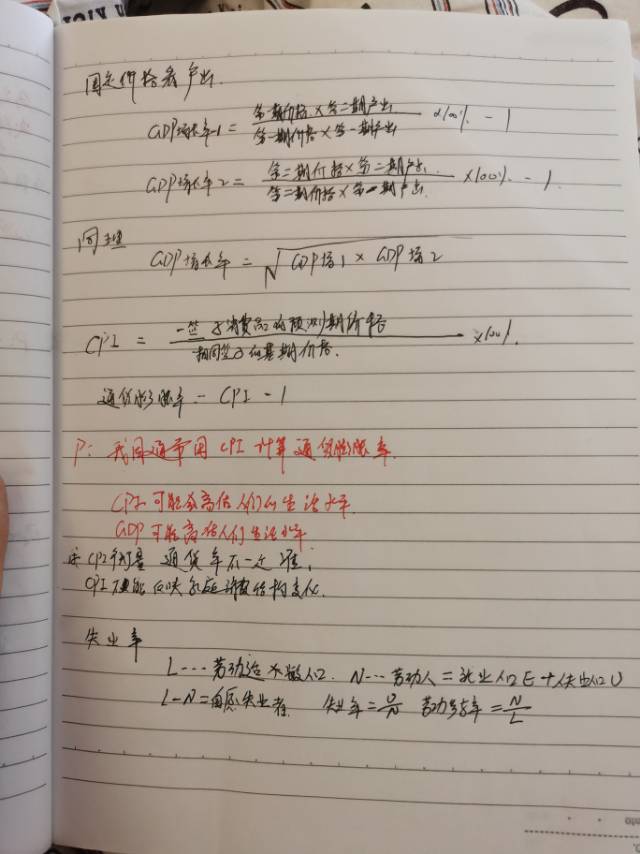 固定价格看产出.
GDP增长率1 = 第一期价格×第二期产出 / 第一期价格×第一期产出 ×100% - 1
GDP增长率2 = 第二期价格×第二期产出 / 第二期价格×第一期产出 ×100% - 1.
同理
GDP增长率 = √GDP增1 × GDP增2
CPI = 一篮子消费品的预测期价格 / 相同篮子的基期价格. ×100%.
通货膨胀率 = CPI - 1
P: 我国通常用CPI计算通货膨胀率.
CPI可能会高估人们的生活水平.
GDP可能高估人们生活水平
CPI衡量通货率不一定准;
CPI不能反映消费结构变化.
失业率
L…劳动适龄人口. N…劳动人=就业人口E+失业人口U
L-N=自愿失业者. 失业率=U/N 劳动参与率=N/L